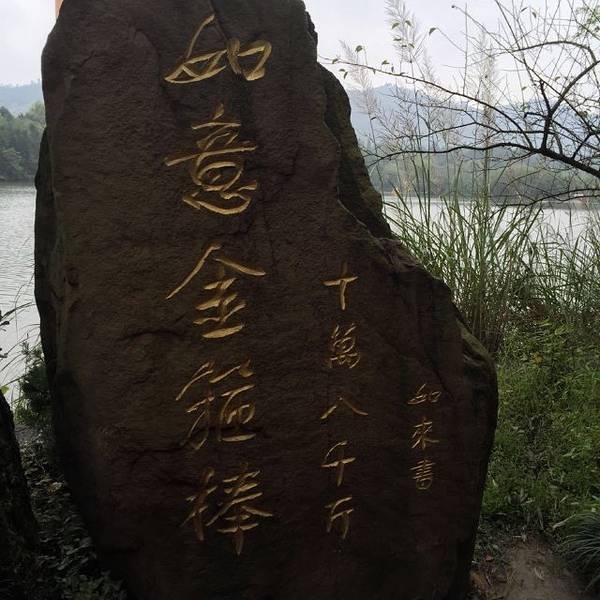 如意金箍棒
十萬八千斤
如來書